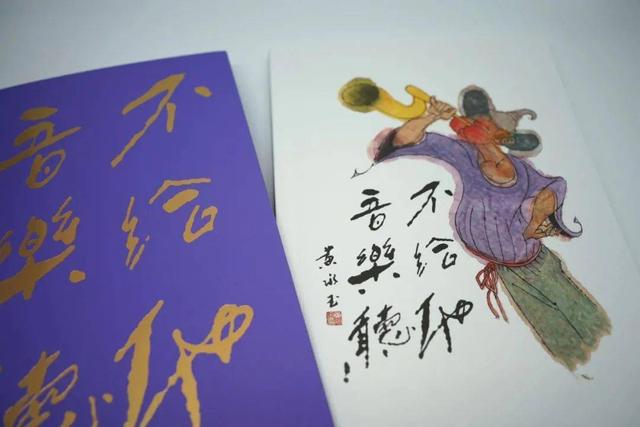 不給他
音樂聽
不給他
音樂聽
黄永玉